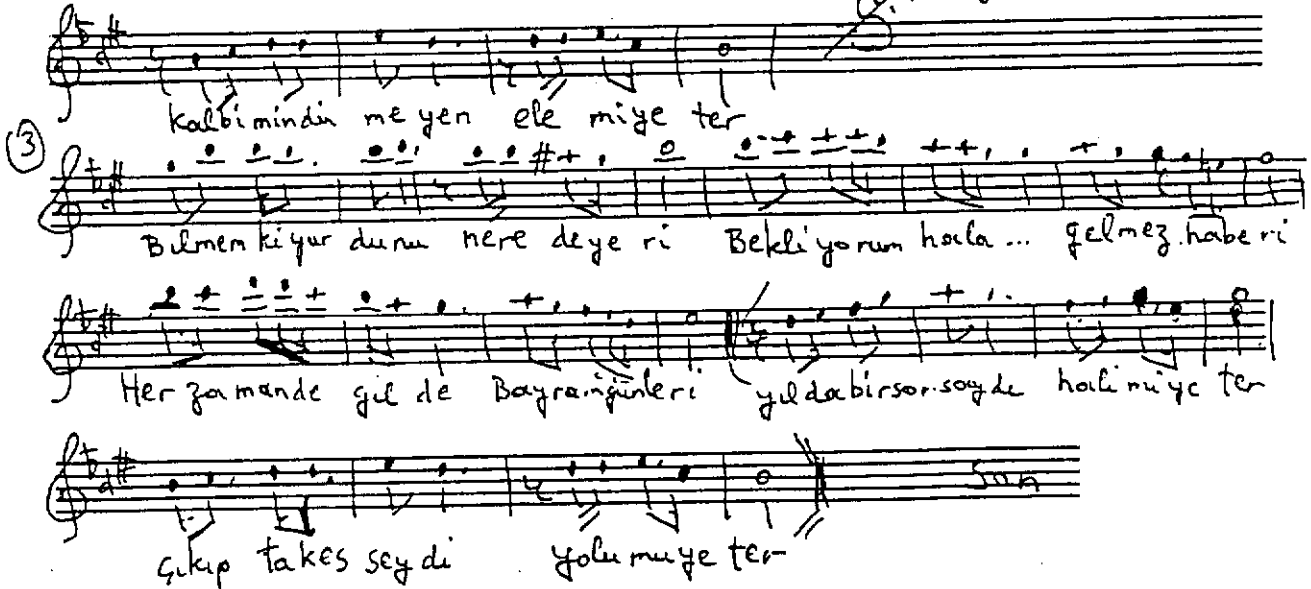 Kalbimindin meyen ele miye ter
3
Bilmem ki yur dunu nere deye ri Bekli yorum hala... gelmez haberi
Her zamande gil de Bayramgünleri yıldabirsor.soydu halimiye ter
Son
Çıkıp takes seydi yolumuye ter